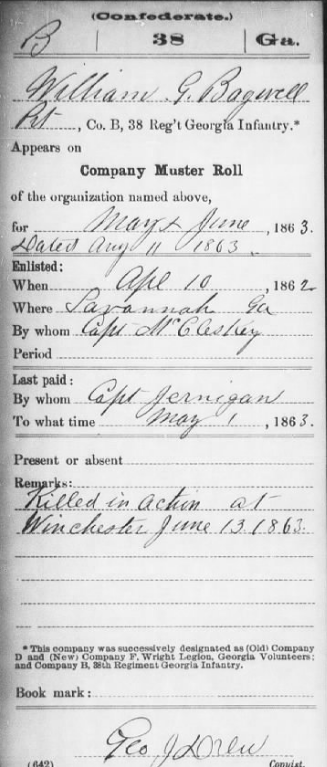 (Confederate.)
B | 38 | Ga.
William G. Bagwell
Pvt, Co. B, 38 Reg't Georgia Infantry.*
Appears on
Company Muster Roll
of the organization named above,
for May & June, 1863.
Dated Aug 11 1863.
Enlisted:
When Apl 10, 1862
Where Savannah Ga
By whom Capt McCleskey
Period
Last paid:
By whom Capt Jernigan
To what time May 1, 1863.
Present or absent
Remarks:
Killed in action at
Winchester June 13. 1863.
* This company was successively designated as (Old) Company
D and (New) Company F, Wright Legion, Georgia Volunteers;
and Company B, 38th Regiment Georgia Infantry.
Book mark:
Geo J Drew
(642) Copyist.